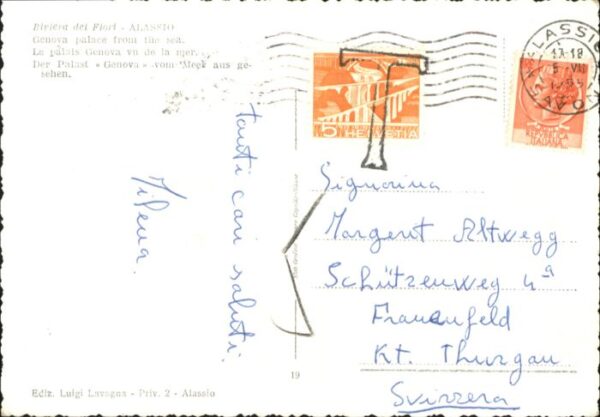 Riviera dei Fiori - ALASSIO
Genova palace from the sea.
Le palais Genova vu de la mer.
Der Palast « Genova » vom Meer aus ge-
sehen.
tanti cari saluti.
Milena
Ediz. Luigi Lavagna - Priv. 2 - Alassio
19
5
HELVETIA
T
ALASSIO
17-18
REPUBBLICA
ITALIANA
Signorina
Margerit Altwegg
Schützenweg 4a
Frauenfeld
Kt. Thurgau
Svizzera